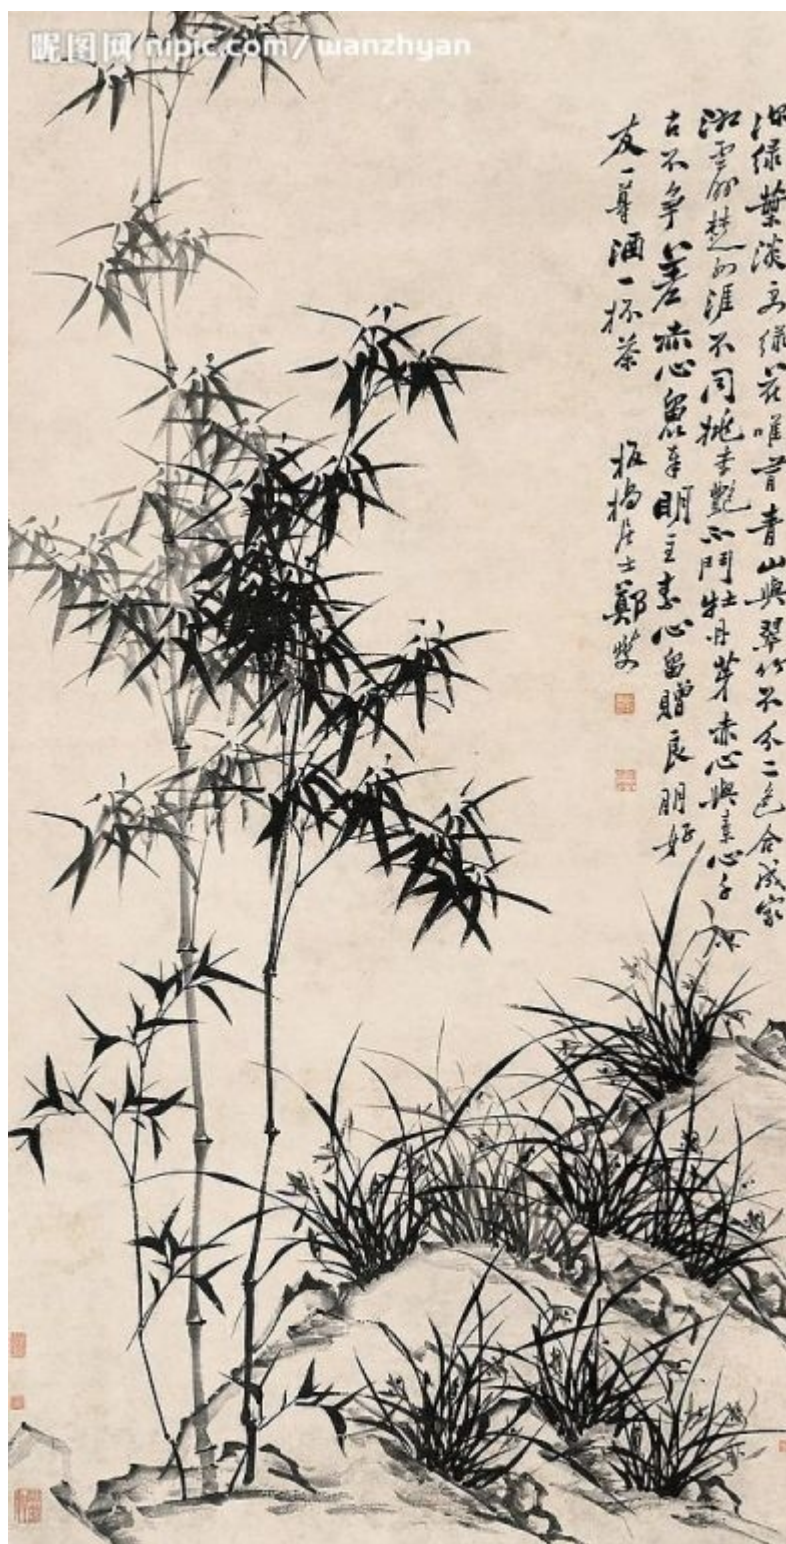 昵图网 nipic.com/wanzhyan
綠葉淡綠花唯青山與翠竹不分二色合成家
湘雲楚涯不同桃李艷不鬥牡丹芽赤心與素心千
古不爭差赤心留奉明主素心留贈良朋好
友一尊酒一杯茶 板橋居士鄭燮